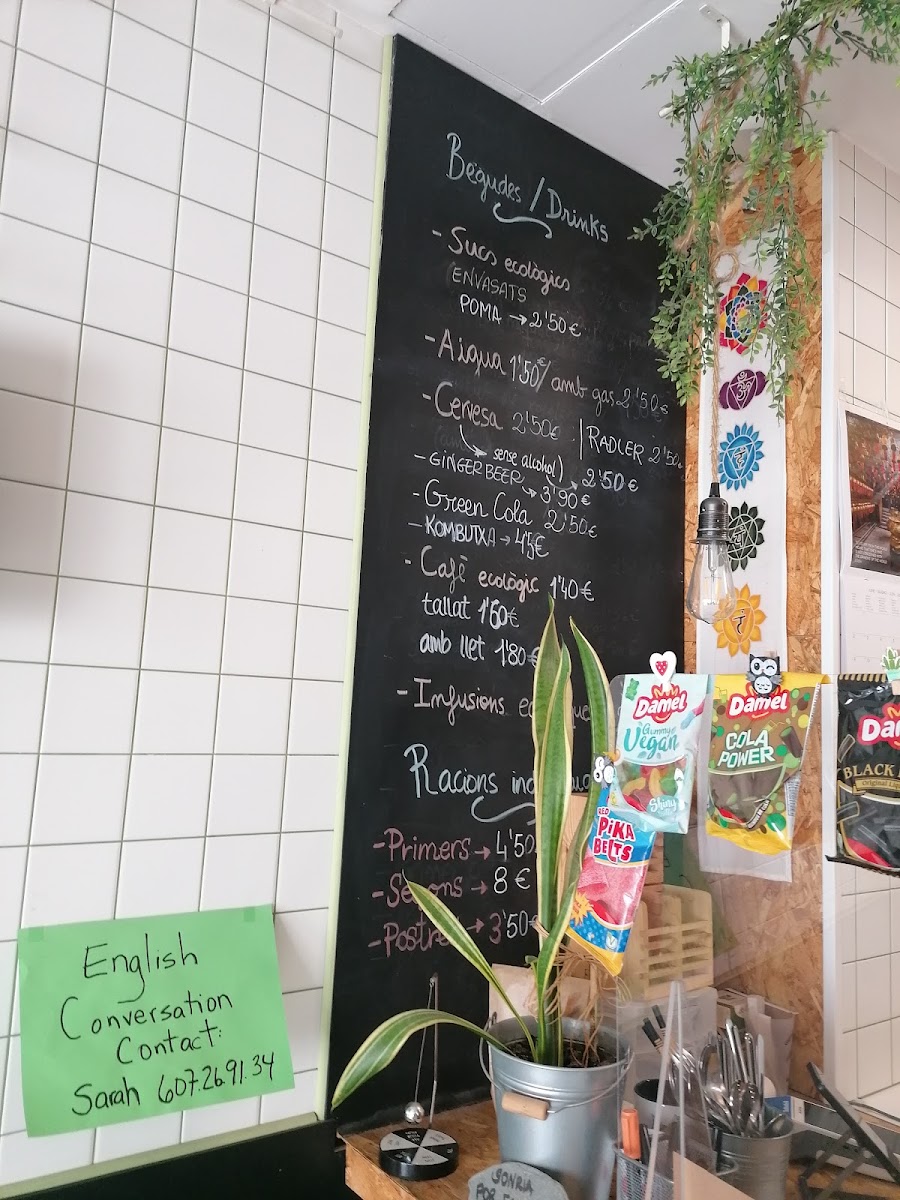 Begudes / Drinks
- Sucs ecològics
ENVASATS
POMA → 2'50€
- Aigua 1'50€/ amb gas 2'50€
- Cervesa 2'50€ | RADLER 2'50€
sense alcohol) → 2'50€
- GINGER BEER → 3'90€
- Green Cola 2'50€
- KOMBUTXA → 4'5€
- Cafè ecològic 1'40€
tallat 1'60€
amb llet 1'80€
- Infusions
Racions
- Primers → 4'50
- Segons → 8€
- Postres → 3'50€
English
Conversation
Contact:
Sarah 607.26.91.34
Damel
Gummy
Vegan
Shiny
Damel
COLA
POWER
RED
PIKA
BELTS
BLACK
Original
SONRIA
POR